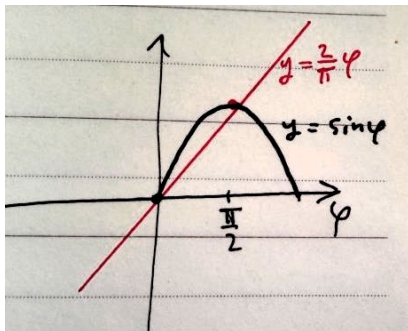 y = 2/π φ
y = sinφ
π/2
φ